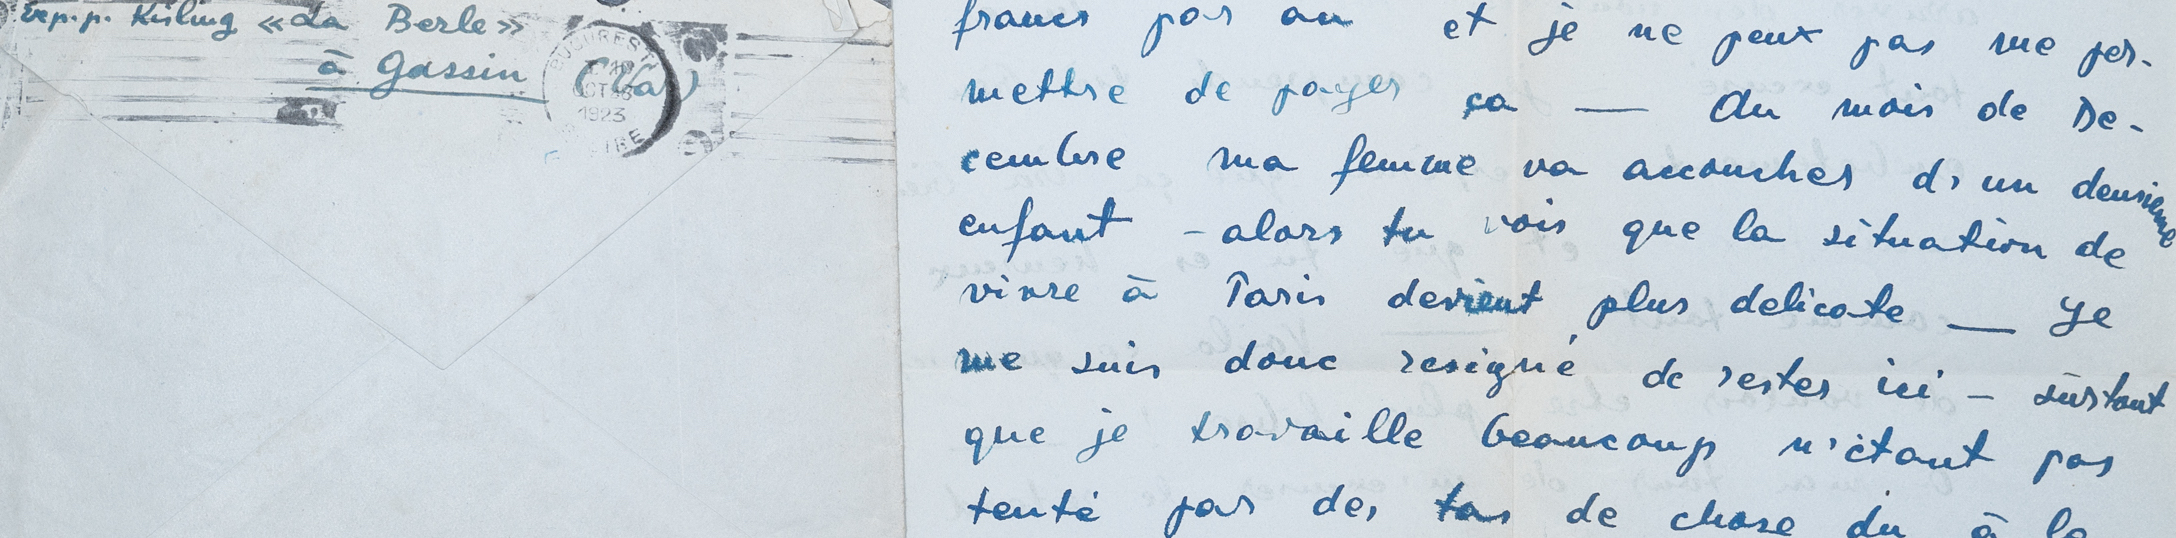 rep.p. Kisling «La Berle»
à Gassin (Var)
BUCUREST
OCT
1923
francs par an et je ne peux pas me per-
mettre de payer ça — Au mois de De-
cembre ma femme va accoucher d'un deusieme
enfant - alors tu vois que la situation de
vivre à Paris devient plus delicate — Je
me suis donc resigné de rester ici - surtout
que je travaille beaucoup n'étant pas
tenté par des tas de chose du à la